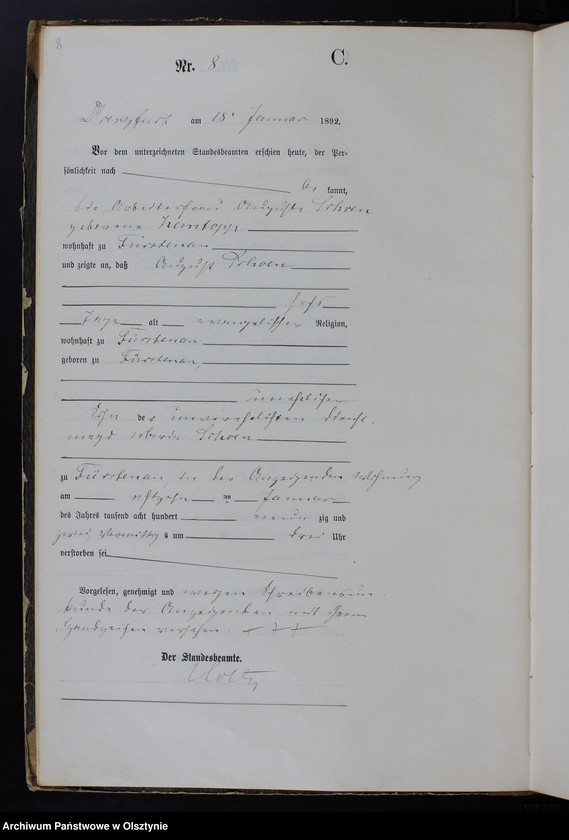 8
Nr. 8 C.
Drengfurt am 18. Januar 1892.
Vor dem unterzeichneten Standesbeamten erschien heute, der Per-
sönlichkeit nach
be kannt,
die Arbeiterfrau Auguste Schoen
geborene
wohnhaft zu Fürstenau
und zeigte an, daß August Schoen
sechs
Tage alt evangelischer Religion,
wohnhaft zu Fürstenau
geboren zu Fürstenau,
unehelicher
Sohn der unverehelichten Dienst-
magd Schoen
zu Fürstenau, in der Anzeigenden Wohnung
am achtzehn ten Januar
des Jahres tausend acht hundert neun zig und
zwei, Vormittags um drei Uhr
verstorben sei.
Vorgelesen, genehmigt und wegen Schreibensun-
kunde der Anzeigenden mit ihrem
Handzeichen versehen. +++
Der Standesbeamte.
Archiwum Państwowe w Olsztynie